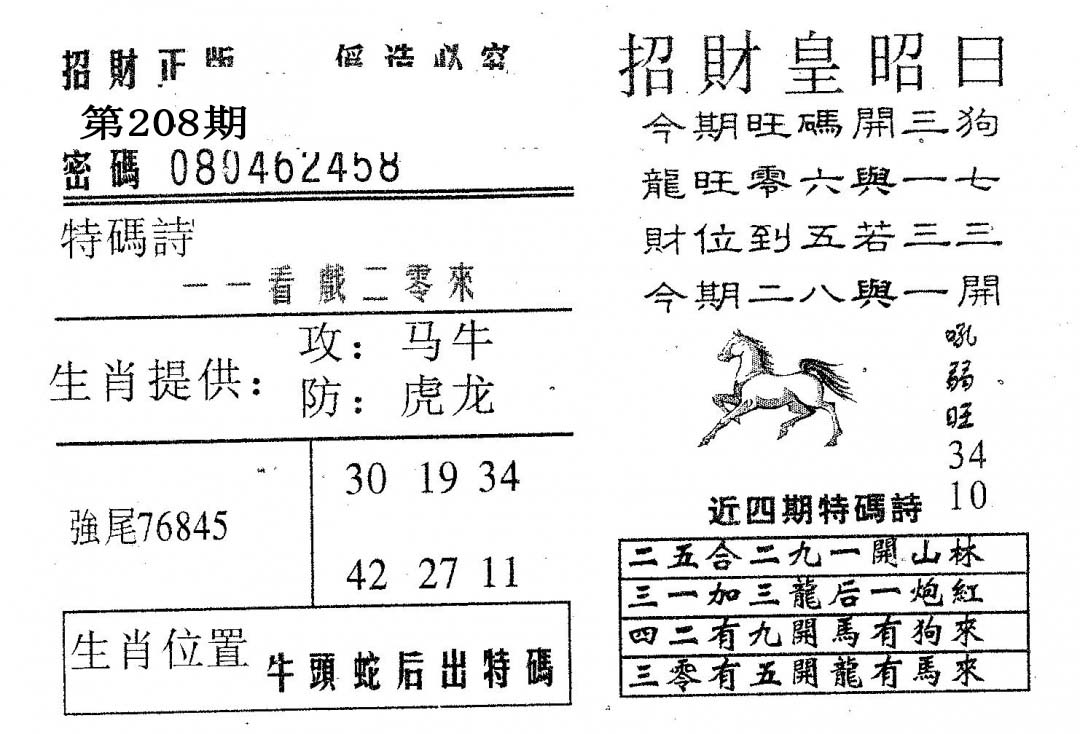 招財正版 偽造必究
第208期
密碼 080462458
特碼詩
一一看戲二零來
生肖提供：
攻：马牛
防：虎龙
強尾76845
30 19 34
42 27 11
生肖位置
牛頭蛇后出特碼
招財皇昭曰
今期旺碼開三狗
龍旺零六與一七
財位到五若三三
今期二八與一開
吼弱旺。
34
10
近四期特碼詩
二五合二九一開山林
三一加三龍后一炮紅
四二有九開馬有狗來
三零有五開龍有馬來